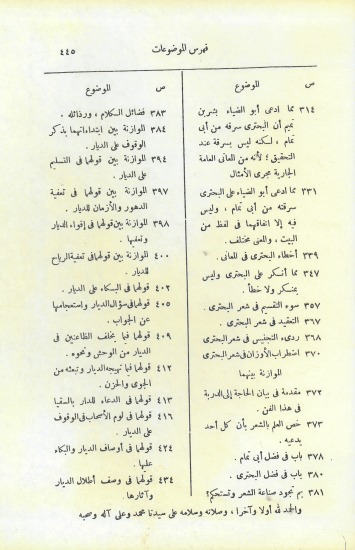 فهرس الموضوعات ٤٤٥
ص الموضوع
٣١٤ مما ادعى أبو الضياء بشر بن
تميم أن البحترى سرقه من أبى
تمام ، لكنه ليس بسرقة عند
التحقيق ؛ لأنه من المعانى العامة
الجارية مجرى الأمثال
٣٣١ مما ادعى أبو الضياء على البحترى
سرقته من أبى تمام ، وليس
فيه إلا اتفاقهما فى لفظ من
البيت ، والمعنى مختلف .
٣٣٩ أخطاء البحترى فى المعانى .
٣٤٧ مما أنكر على البحترى وليس
بمنكر ولا خطأ .
٣٥٧ سوء التقسيم فى شعر البحترى .
٣٦٧ التعقيد فى شعره .
٣٦٨ ردىء التجنيس فى شعر البحترى
٣٧٠ اضطراب الأوزان فى شعر البحترى
الموازنة بينهما
٣٧٢ مقدمة فى بيان الحاجة إلى الدربة
فى هذا الفن .
٣٧٣ خص العلم بالشعر بأن كل أحد
يدعيه .
٣٧٨ باب فى فضل أبى تمام .
٣٨٠ باب فى فضل البحترى .
٣٨١ بم تجود صناعة الشعر وتستحكم؟
ص الموضوع
٣٨٣ فضائل الكلام ، ورذائله .
٣٨٤ الموازنة بين ابتداءاتهما بذكر
الوقوف على الديار .
٣٩٤ الموازنة بين قولهما فى التسليم
على الديار .
٣٩٧ الموازنة بين قولهما فى تعفية
الدهور والأزمان للديار .
٣٩٨ الموازنة بين قولهما فى إقواء الديار
وتعفيها .
٤٠٠ الموازنة بين قولهما فى تعفية الرياح
للديار .
٤٠٢ قولهما فى البكاء على الديار .
٤٠٥ قولهما فى سؤال الديار واستعجامها
عن الجواب .
٤٠٩ قولهما فيما يخلف الظاعنين فى
الديار من الوحش ونحوه .
٤١٢ قولهما فيما تهيجه الديار وتبعثه من
الجوى والحزن .
٤١٣ قولهما فى الدعاء للدار بالسقيا
٤١٦ قولهما فى لوم الأصحاب فى الوقوف
على الديار .
٤٢٤ قولهما فى أوصاف الديار والبكاء
عليها .
٤٣٤ قولهما فى وصف أطلال الديار
وآثارها .
والحمد لله أولا وآخرا ، وصلاته وسلامه على سيدنا محمد وعلى آله وصحبه